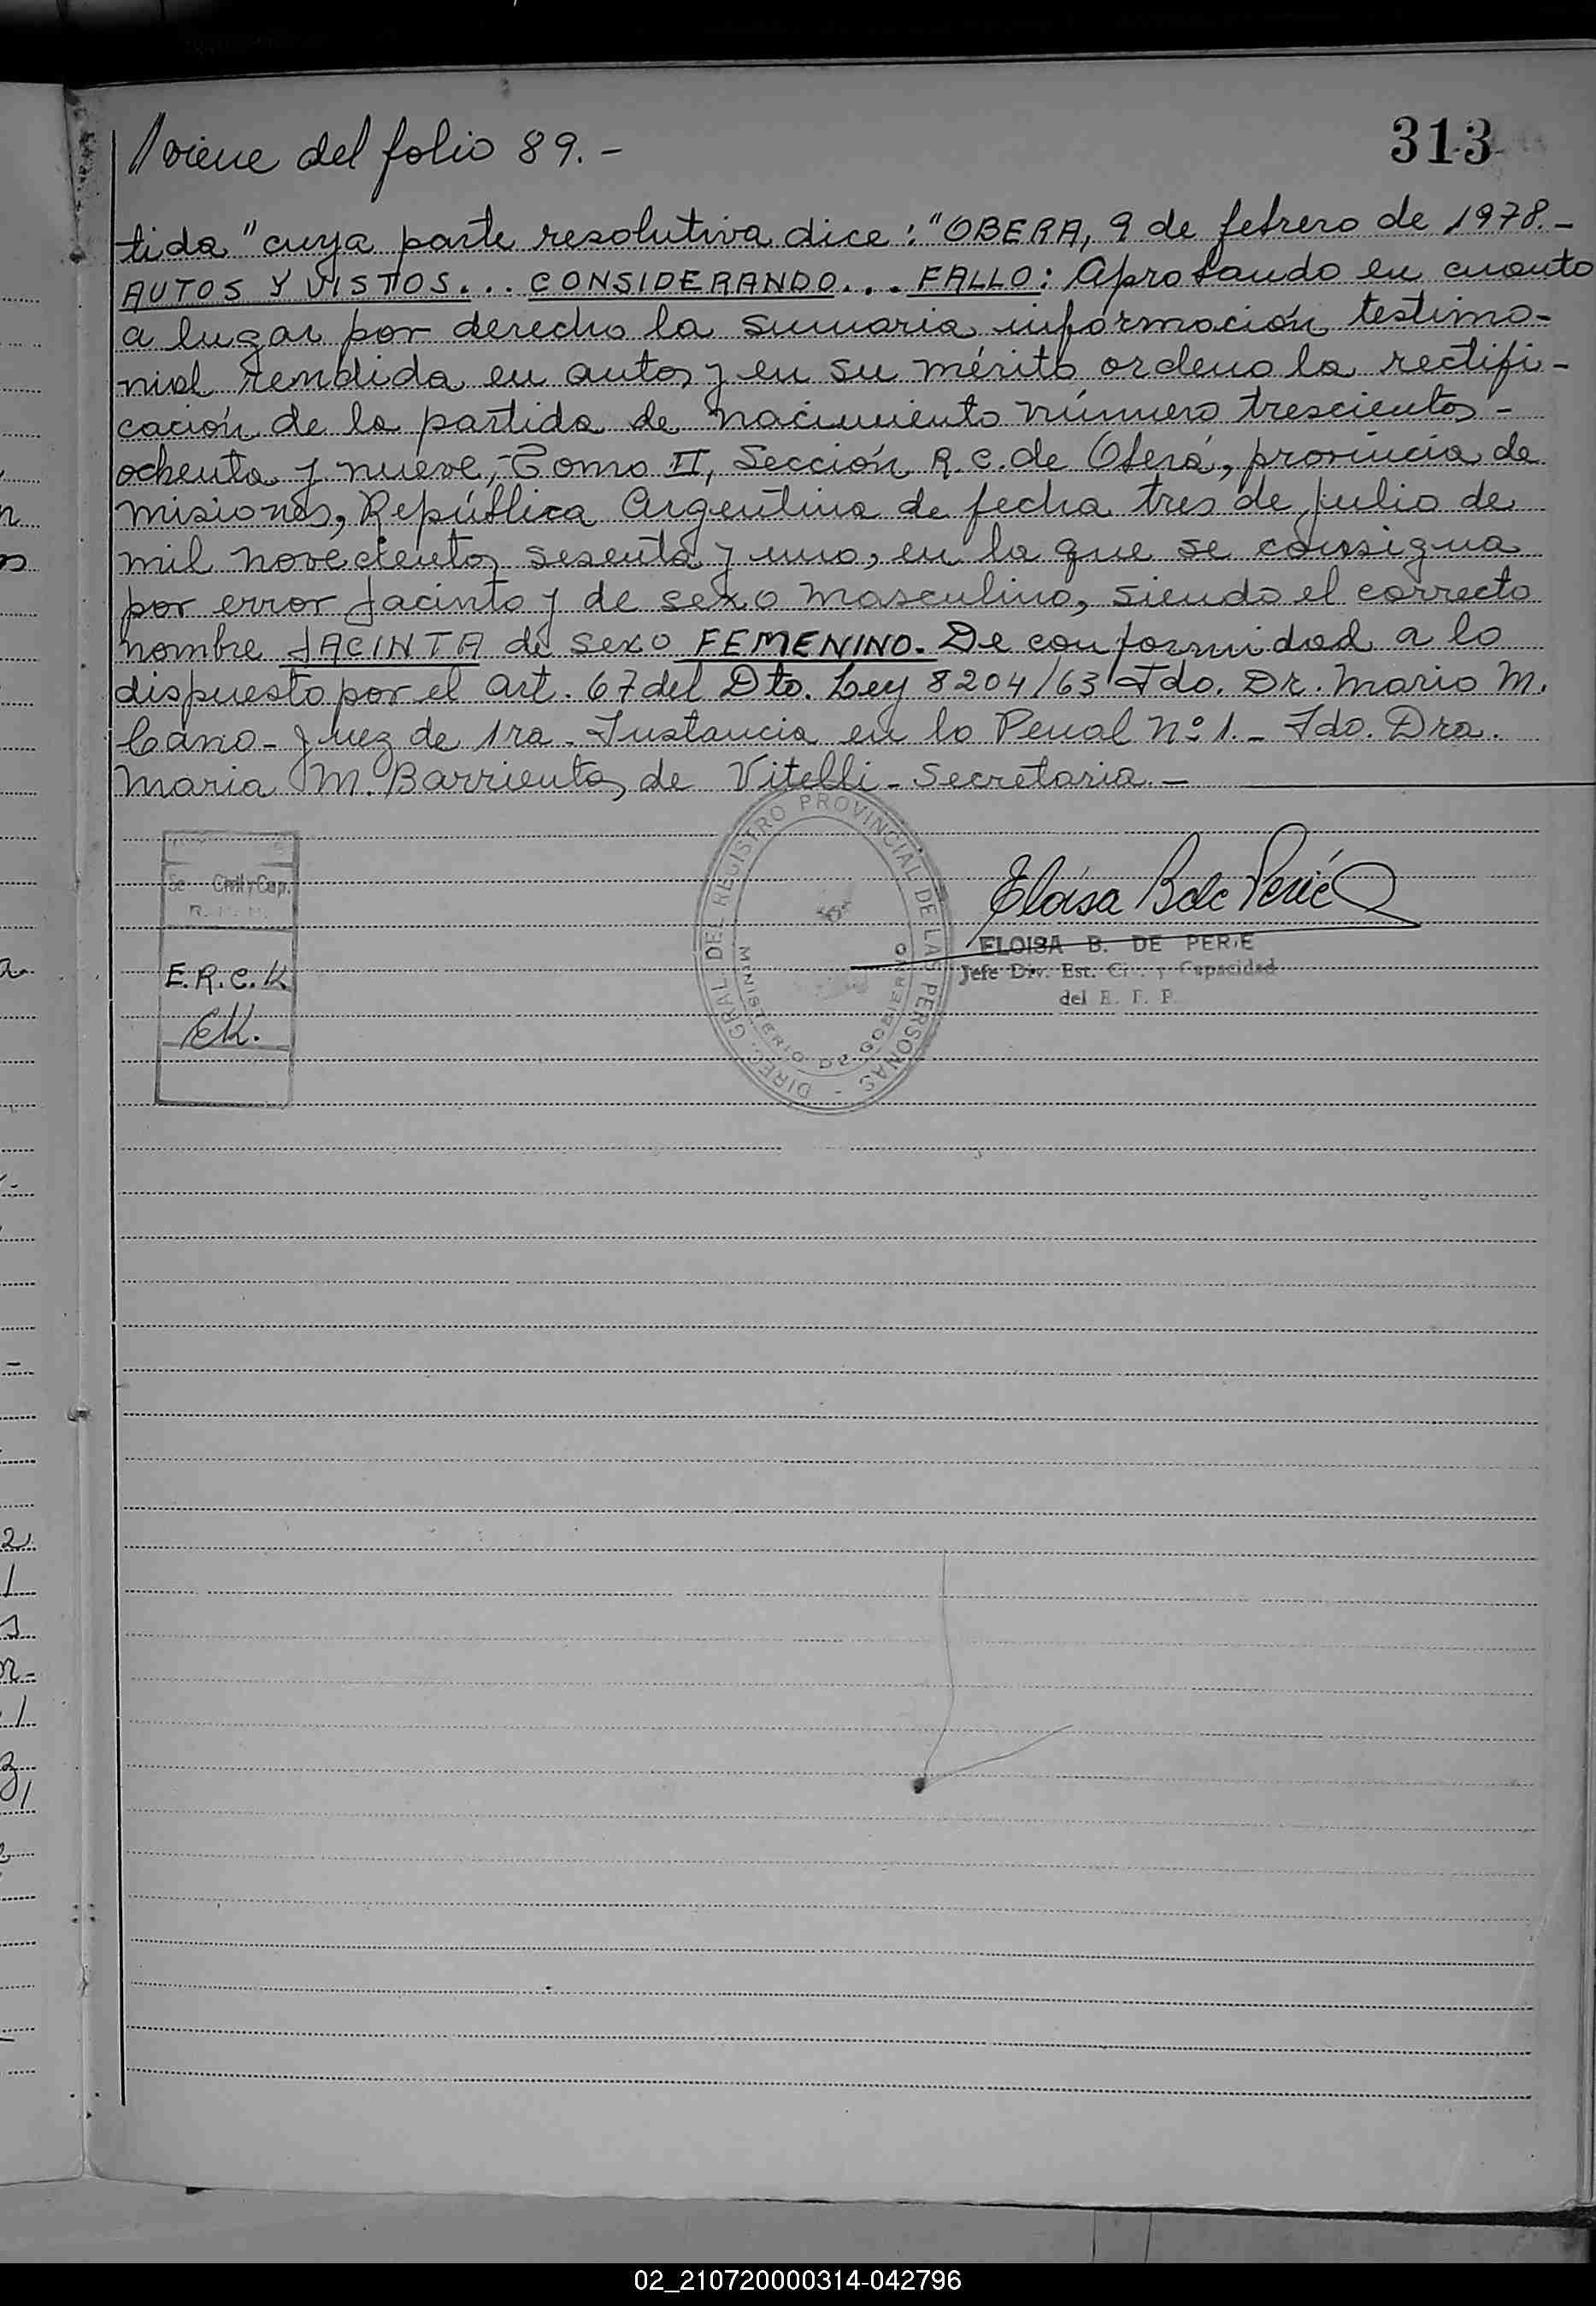 viene del folio 89.-
313
tida" cuya parte resolutiva dice: "OBERA, 9 de febrero de 1978.-
AUTOS Y VISTOS... CONSIDERANDO... FALLO: Aprobando en cuanto
a lugar por derecho la sumaria información testimo-
nial rendida en autos y en su mérito ordeno la rectifi-
cación de la partida de nacimiento número trescientos-
ochenta y nueve, Tomo II, Sección R.C. de Oberá, provincia de
misiones, República Argentina de fecha tres de julio de
mil novecientos sesenta y uno, en la que se consigna
por error Jacinto y de sexo masculino, siendo el correcto
nombre JACINTA de sexo FEMENINO. De conformidad a lo
dispuesto por el art. 67 del Dto. Ley 8204/63 Fdo. Dr. Mario M.
Cano - Juez de 1ra. Instancia en lo Penal Nº 1.- Fdo. Dra.
Maria M. Barrientos de Vitelli - Secretaria.-
Civil y Cap.
E.R.C.K.
EK.
DIREC. GRAL DEL REGISTRO PROVINCIAL DE LAS PERSONAS -
MINISTERIO DE GOBIERNO
Eloísa B de Perié
ELOISA B. DE PERIE
Jefe Div. Est. Civ. y Capacidad
del R. P. P.
02_210720000314-042796